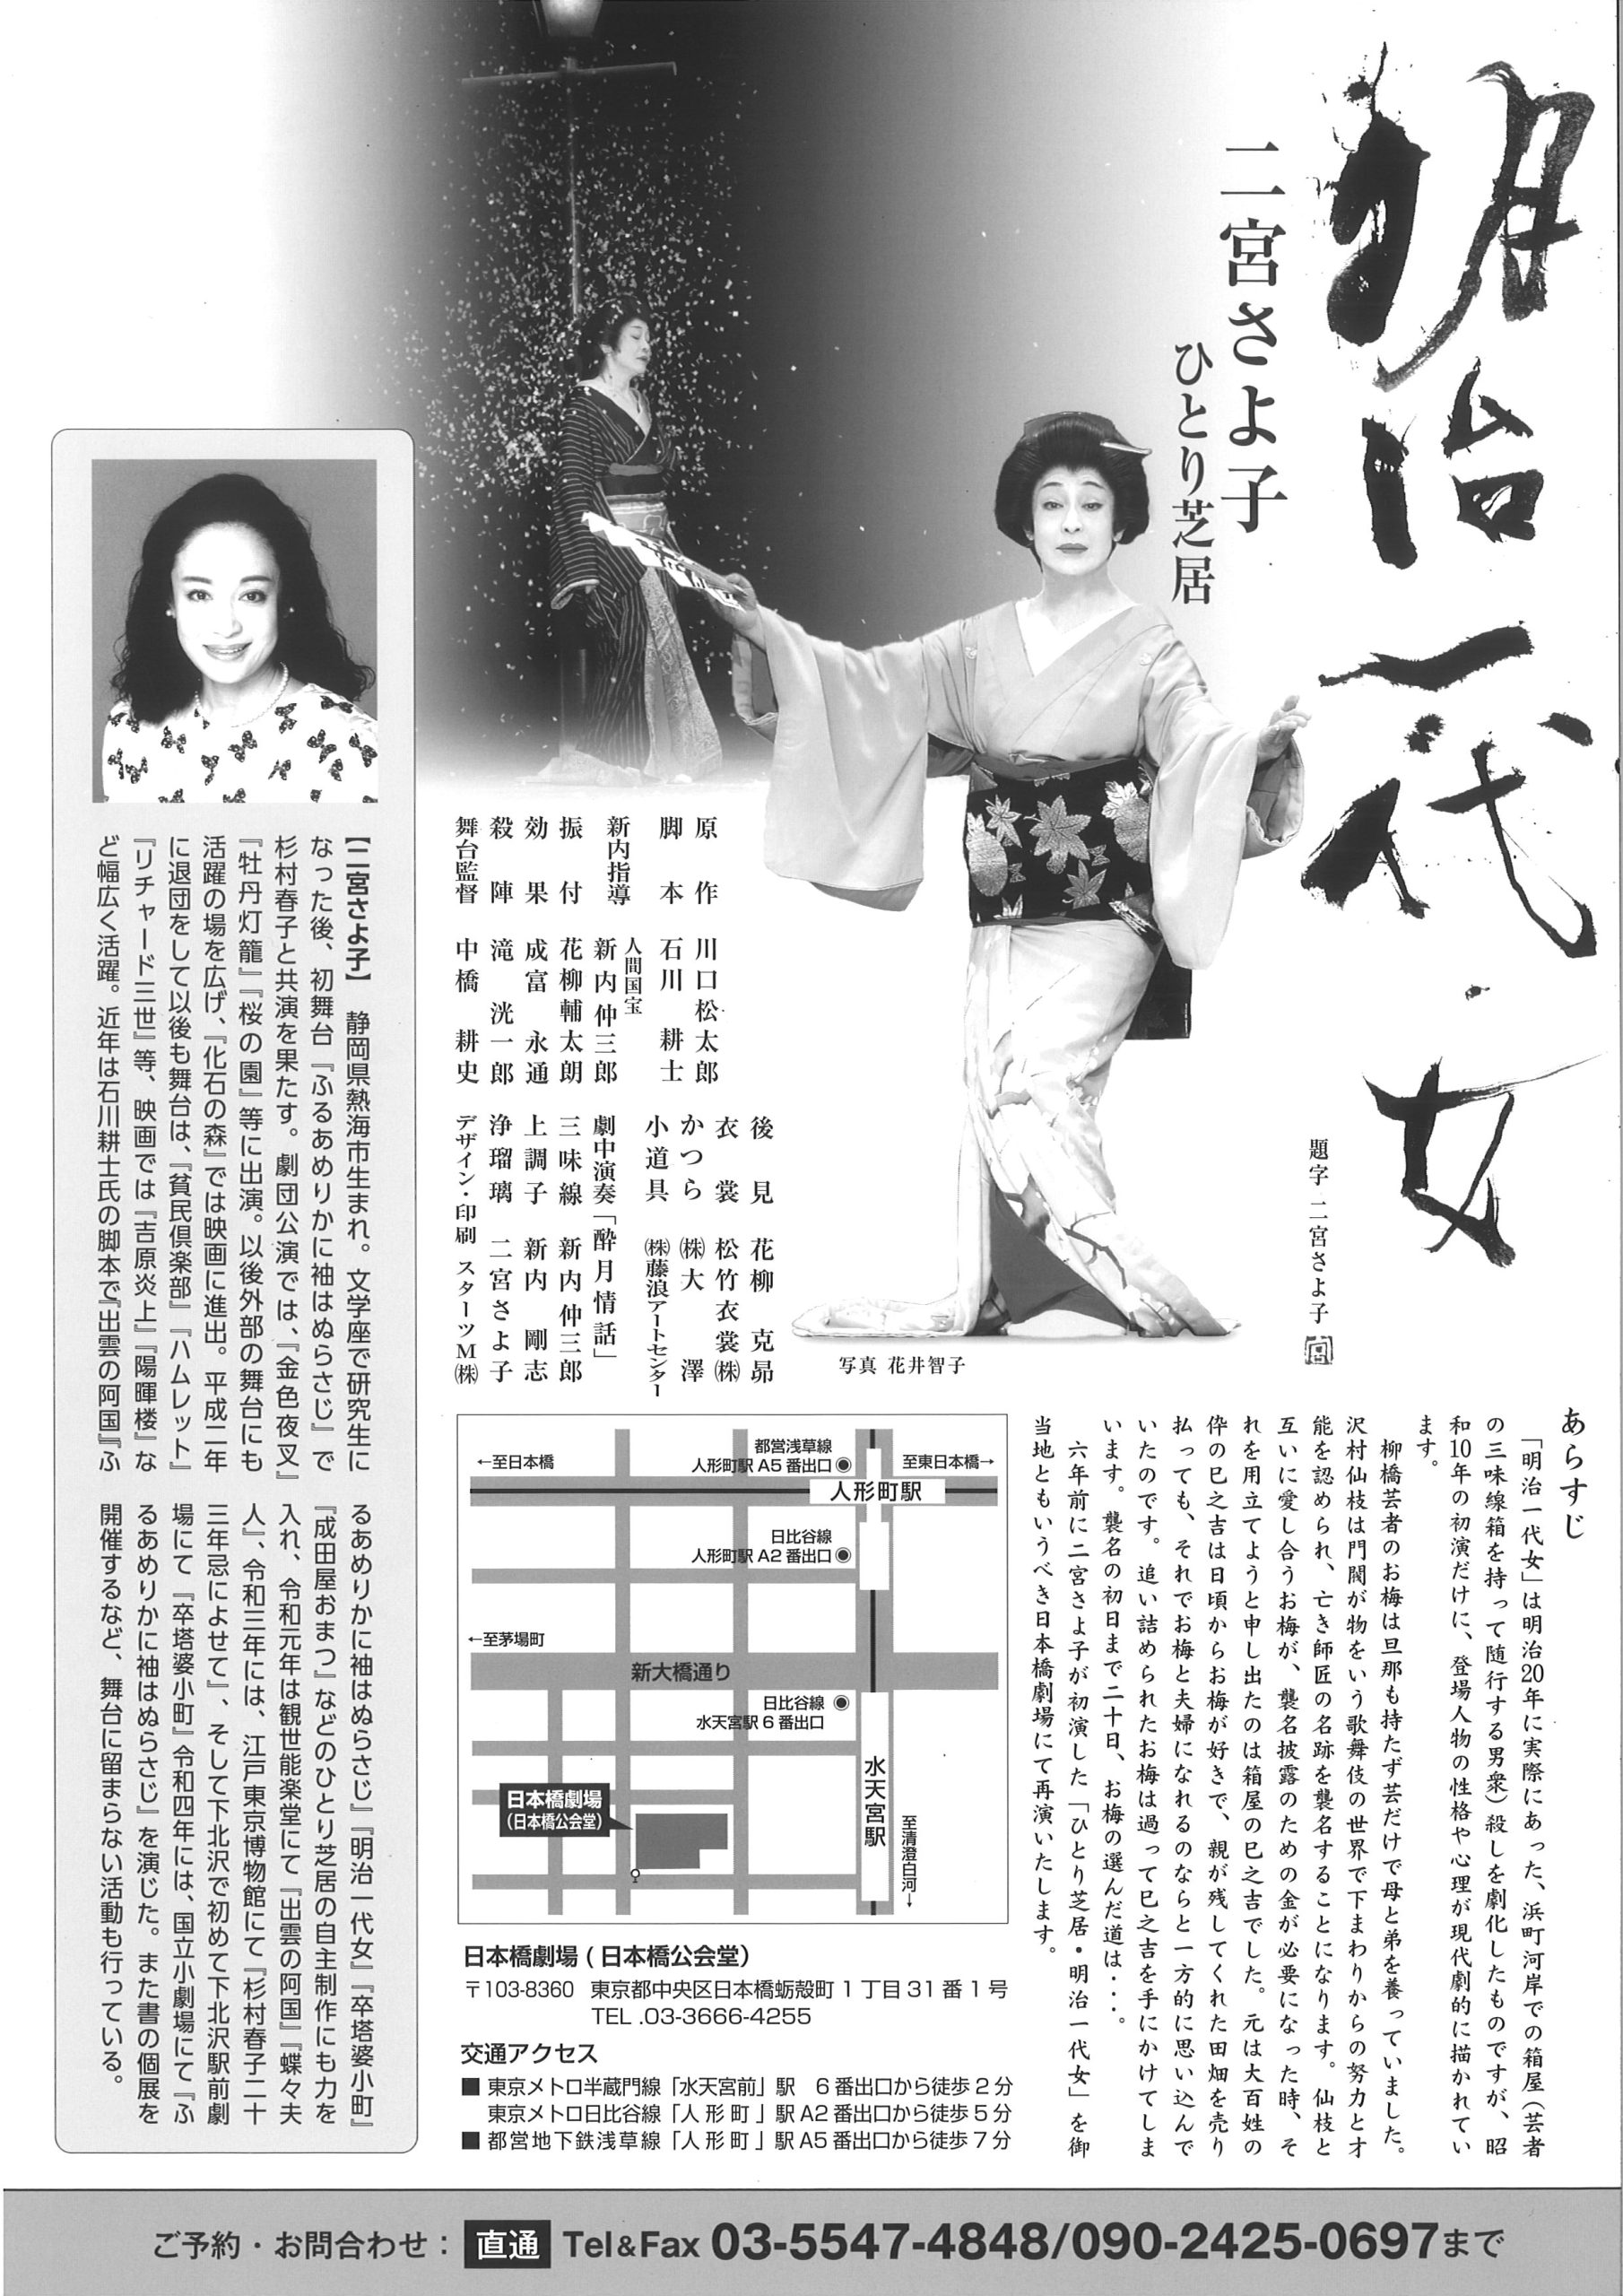 明治一代女
二宮さよ子
ひとり芝居
題字 二宮さよ子
写真 花井智子
原作 川口松太郎
脚本 石川耕士
人間国宝
新内指導 新内仲三郎
振付 花柳輔太朗
効果 成富永通
殺陣 滝洸一郎
舞台監督 中橋耕史
後見 花柳克昴
衣裳 松竹衣裳㈱
かつら ㈱大澤
小道具 ㈱藤浪アートセンター
劇中演奏「酔月情話」
三味線 新内仲三郎
上調子 新内剛志
浄瑠璃 二宮さよ子
デザイン・印刷 スターツM㈱
あらすじ
「明治一代女」は明治20年に実際にあった、浜町河岸での箱屋(芸者
の三味線箱を持って随行する男衆)殺しを劇化したものですが、昭
和10年の初演だけに、登場人物の性格や心理が現代劇的に描かれてい
ます。
柳橋芸者のお梅は旦那も持たず芸だけで母と弟を養っていました。
沢村仙枝は門閥が物をいう歌舞伎の世界で下まわりからの努力と才
能を認められ、亡き師匠の名跡を襲名することになります。仙枝と
互いに愛し合うお梅が、襲名披露のための金が必要になった時、そ
れを用立てようと申し出たのは箱屋の巳之吉でした。元は大百姓の
倅の巳之吉は日頃からお梅が好きで、親が残してくれた田畑を売り
払っても、それでお梅と夫婦になれるのならと一方的に思い込んで
いたのです。追い詰められたお梅は過って巳之吉を手にかけてしま
います。襲名の初日まで二十日、お梅の選んだ道は・・・。
六年前に二宮さよ子が初演した「ひとり芝居・明治一代女」を御
当地ともいうべき日本橋劇場にて再演いたします。
【二宮さよ子】 静岡県熱海市生まれ。文学座で研究生に
なった後、初舞台『ふるあめりかに袖はぬらさじ』で
杉村春子と共演を果たす。劇団公演では、『金色夜叉』
『牡丹灯籠』『桜の園』等に出演。以後外部の舞台にも
活躍の場を広げ、『化石の森』では映画に進出。平成二年
に退団をして以後も舞台は、『貧民倶楽部』『ハムレット』
『リチャード三世』等、映画では『吉原炎上』『陽暉楼』な
ど幅広く活躍。近年は石川耕士氏の脚本で『出雲の阿国』『ふ
るあめりかに袖はぬらさじ』『明治一代女』『卒塔婆小町』
『成田屋おまつ』などのひとり芝居の自主制作にも力を
入れ、令和元年は観世能楽堂にて『出雲の阿国』『蝶々夫
人』、令和三年には、江戸東京博物館にて『杉村春子二十
三年忌によせて』、そして下北沢で初めて下北沢駅前劇
場にて『卒塔婆小町』令和四年には、国立小劇場にて『ふ
るあめりかに袖はぬらさじ』を演じた。また書の個展を
開催するなど、舞台に留まらない活動も行っている。
←至日本橋
都営浅草線
人形町駅A5番出口
至東日本橋→
人形町駅
日比谷線
人形町駅A2番出口
←至茅場町
新大橋通り
日比谷線
水天宮駅6番出口
水天宮駅
日本橋劇場
(日本橋公会堂)
至清澄白河→
日本橋劇場(日本橋公会堂)
〒103-8360 東京都中央区日本橋蛎殻町1丁目31番1号
TEL .03-3666-4255
交通アクセス
■ 東京メトロ半蔵門線「水天宮前」駅 6番出口から徒歩2分
東京メトロ日比谷線「人形町」駅A2番出口から徒歩5分
■ 都営地下鉄浅草線「人形町」駅A5番出口から徒歩7分
ご予約・お問合わせ：直通 Tel&Fax 03-5547-4848/090-2425-0697まで